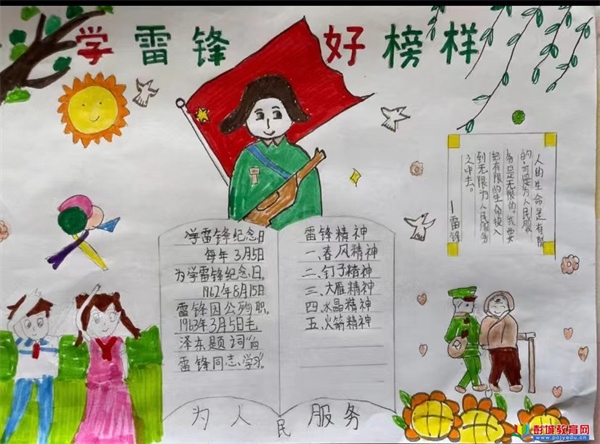 学雷锋 好榜样
学雷锋纪念日
每年3月5日
为学雷锋纪念日。
1962年8月15日
雷锋因公殉职，
1963年3月5日毛
泽东题词“向
雷锋同志学习”。
雷锋精神
一、春风精神
二、钉子精神
三、大雁精神
四、水晶精神
五、火箭精神
人的生命是有限
的，可是为人民服
务是无限的，我要
把有限的生命投入
到无限为人民服务
之中去。
—雷锋
为人民服务
彭城教育网
www.pcjyedu.cn